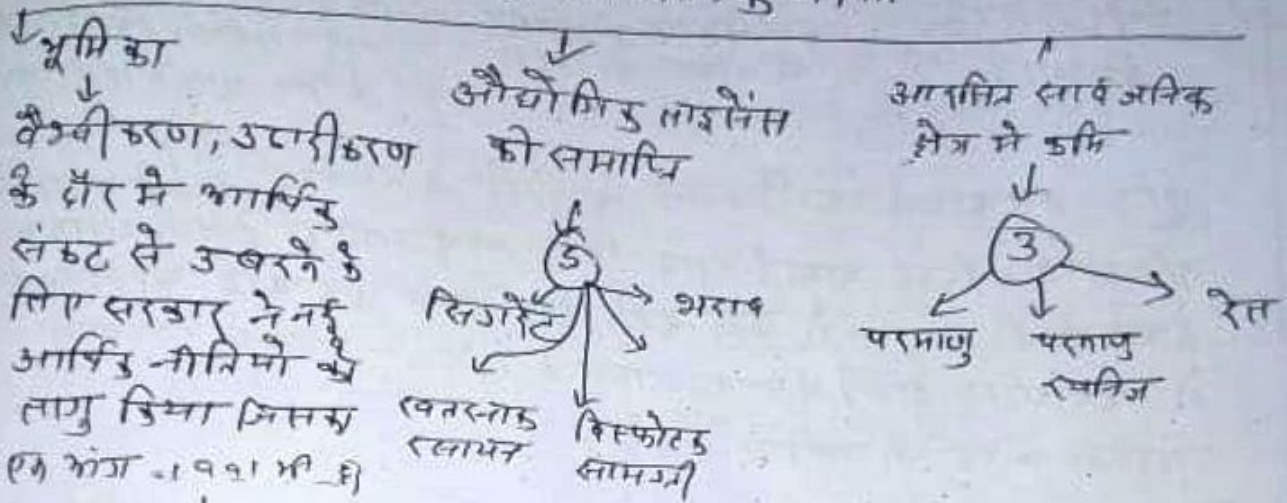 भूमिका
वैश्वीकरण, उदारीकरण
के दौर मे आर्थिक
संकट से उबरने के
लिए सरकार ने नई
आर्थिक नीतियो को
लागु किया जिसका
एक अंग 1991 भी है
औद्योगिक लाइसेंस
की समाप्ति
5
सिगरेट
शराब
खतरनाक
रसायन
विस्फोटक
सामग्री
आरक्षित सार्वजनिक
क्षेत्र मे कमि
3
परमाणु
परमाणु
खनिज
रेल